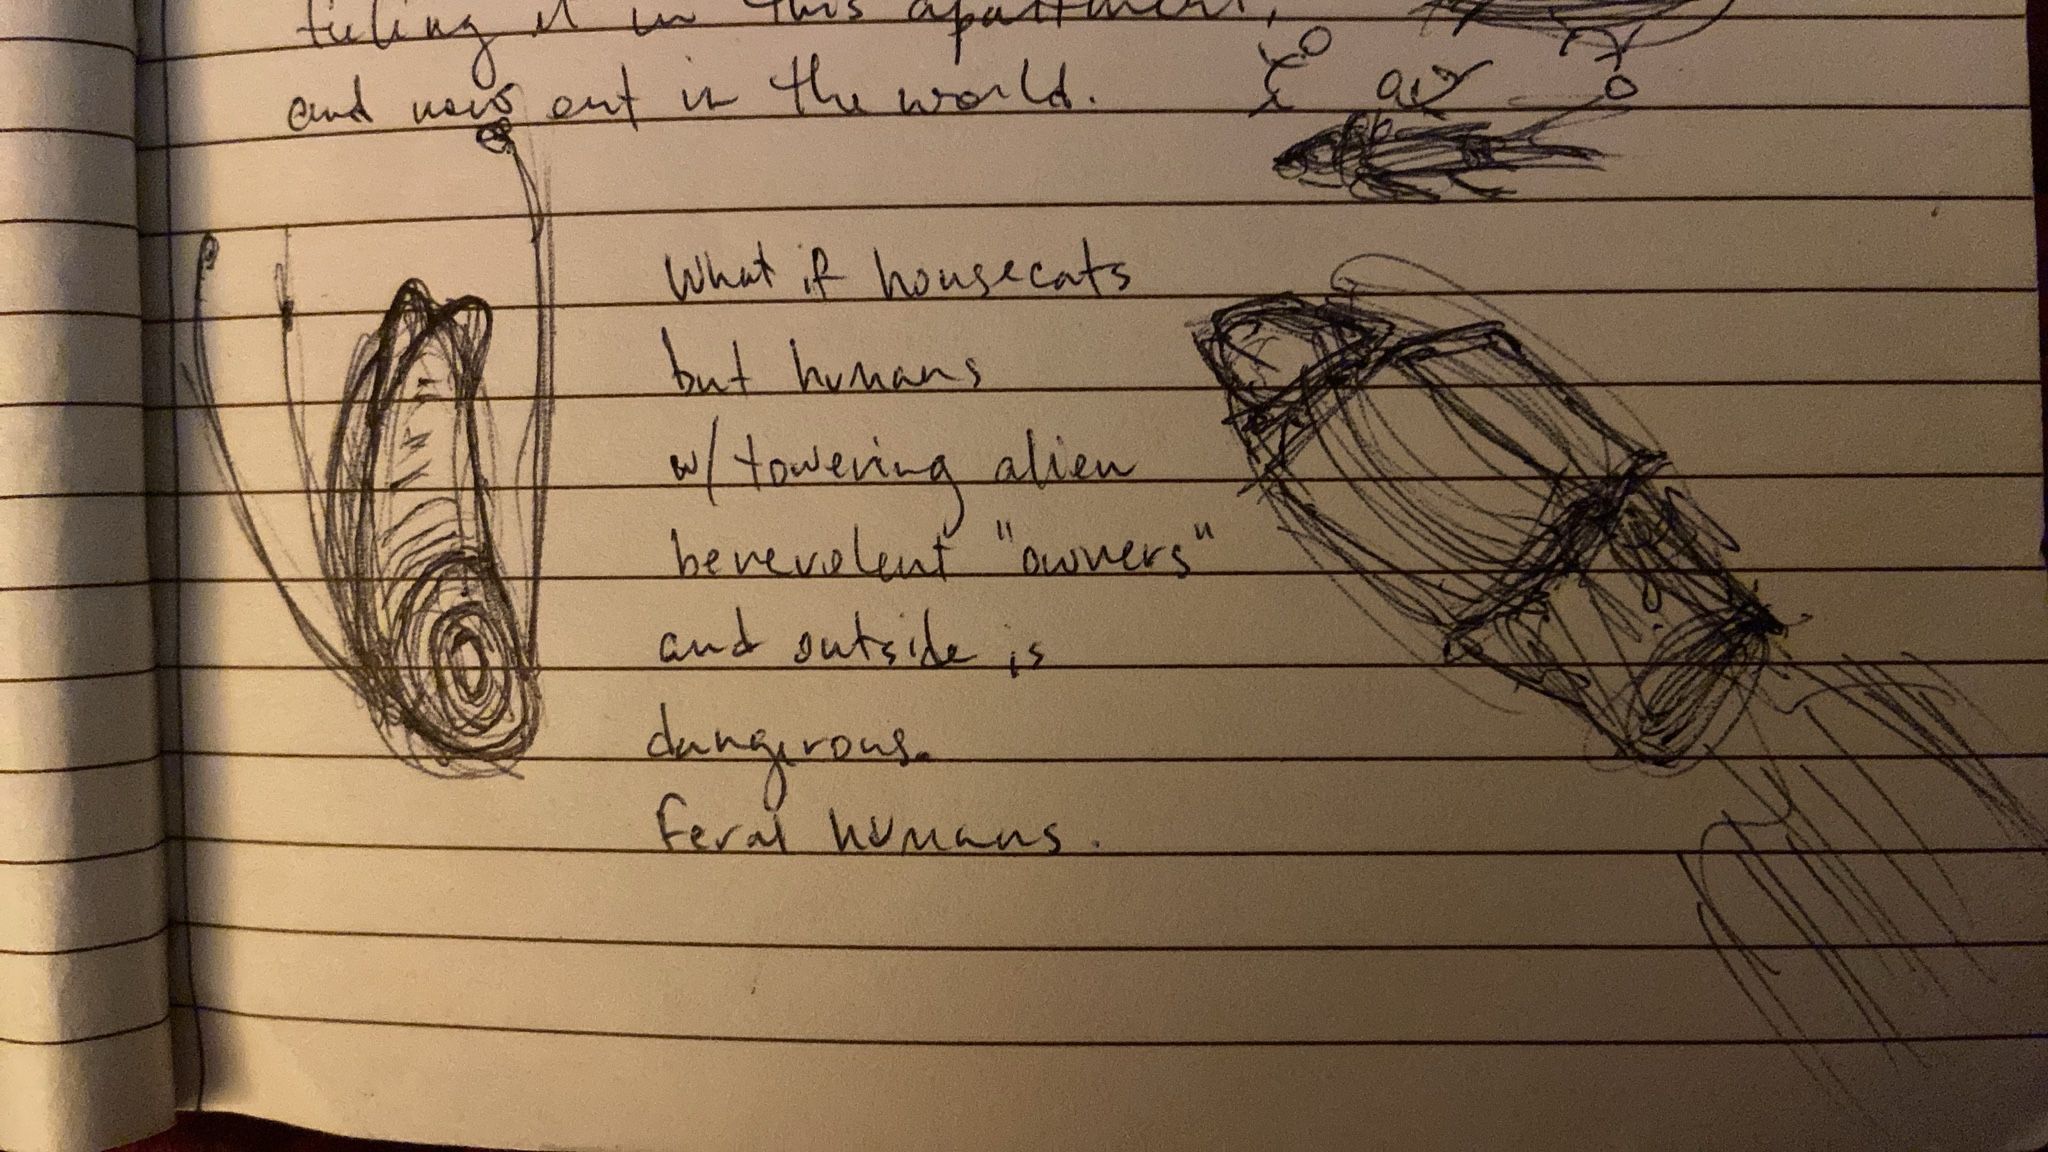 feeling it in this apartment,
and now out in the world.
What if housecats
but humans
w/ towering alien
benevolent "owners"
and outside is
dangerous.
Feral humans.